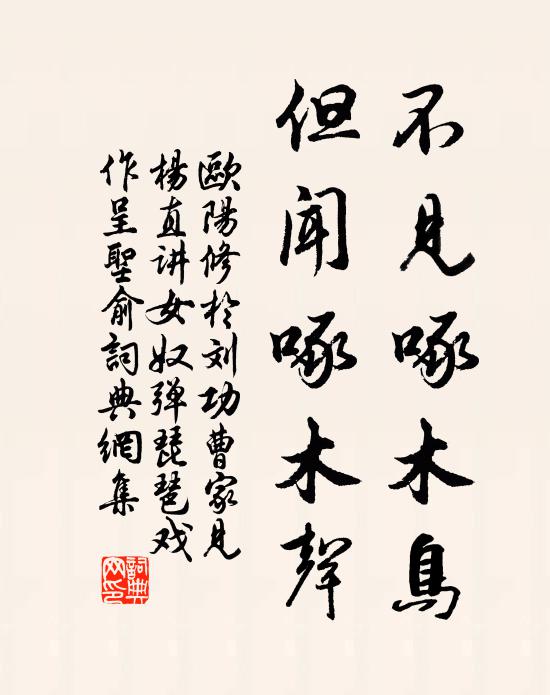 不見啄木鳥
但聞啄木聲
歐陽修於刘功曹家見
楊直讲女奴弹琵琶戏
作呈聖俞詞典網集
詞典网印